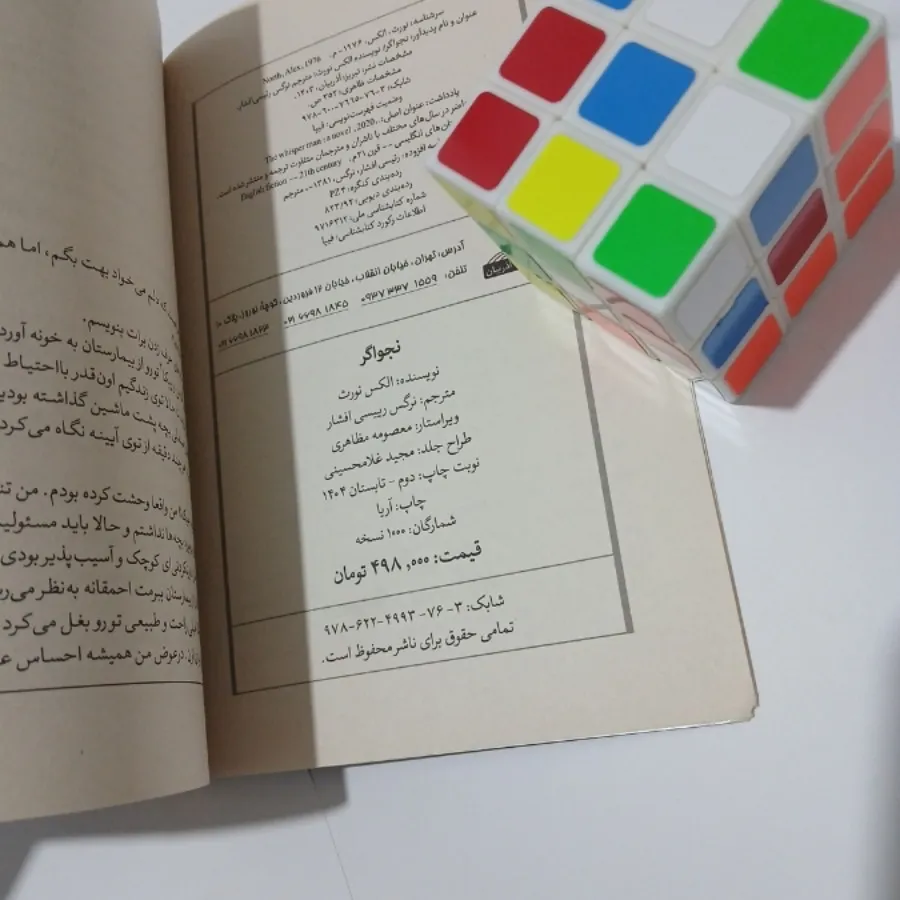 سرشناسه: نورث، الکس، ۱۹۷۶- م. North, Alex, 1976
عنوان و نام پدیدآور: نجواگر/ نویسنده الکس نورث؛ مترجم نرگس رئیسی افشار.
مشخصات نشر: تبریز: آذربیان، ۱۴۰۳.
مشخصات ظاهری: ۳۵۲ ص.
وضعیت فهرست‌نویسی: فیپا
یادداشت: عنوان اصلی: The whisper man : a novel, 2020.
در سال‌های مختلف با ناشران و مترجمان متفاوت ترجمه و منتشر شده است.
‌های انگلیسی -- قرن ۲۱م. English fiction -- 21th century
افزوده: رئیسی افشار، نرگس، ۱۳۸۱-، مترجم
رده‌بندی کنگره: PZ۴
رده‌بندی دیویی: ۸۲۳/۹۲
شماره کتابشناسی ملی: ۹۷۱۶۳۱۲
اطلاعات رکورد کتابشناسی: فیپا
آدرس: تهران، خیابان انقلاب، خیابان ۱۲ فروردین، کوچهٔ نوروز، پلاک ۱۰
تلفن: ۰۹۳۷ ۳۳۷ ۱۵۵۹ ۰۲۱ ۶۶۹۸ ۱۸۴۵
نجواگر
نویسنده: الکس نورث
مترجم: نرگس رییسی افشار
ویراستار: معصومه مظاهری
طراح جلد: مجید غلامحسینی
نوبت چاپ: دوم - تابستان ۱۴۰۴
چاپ: آریا
شمارگان: ۱۰۰۰ نسخه
قیمت: ۴۹۸,۰۰۰ تومان
شابک: ۳-۷۶-۴۹۹۳-۶۲۲-۹۷۸
تمامی حقوق برای ناشر محفوظ است.
دلم می خواد بهت بگم، اما
حرف زدن برات بنویسم.
تورو از بیمارستان به خونه
توی زندگیم اون‌قدر بااحتیاط
بچه پشت ماشین گذاشته
دقیقه از توی آیینه نگاه می‌کرد
من واقعا وحشت کرده بودم. من
نداشتم و حالا باید
ای کوچک و آسیب‌پذیر بودی
بیمارستان ببرمت احمقانه به‌نظر
راحت و طبیعی تورو بغل می‌کرد
درعوض من همیشه احساس